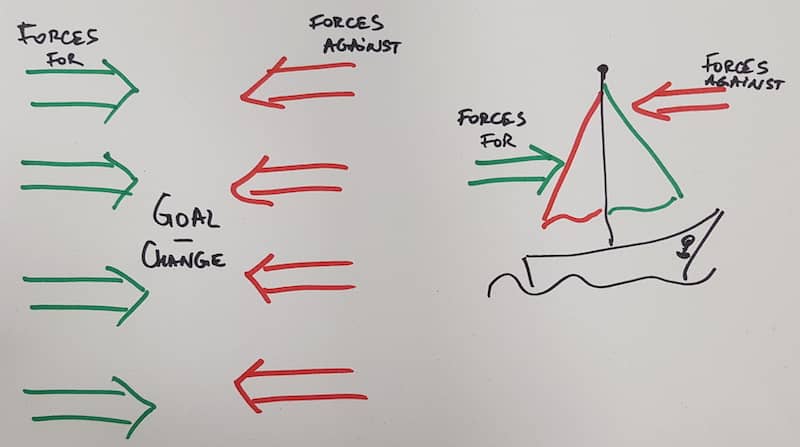 FORCES
FOR
FORCES
AGAINST
GOAL
-
CHANGE
FORCES
FOR
FORCES
AGAINST